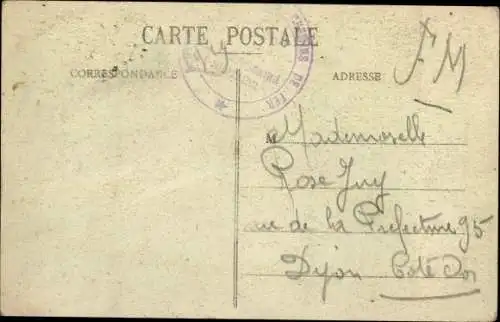 CARTE POSTALE
FM
CORRESPONDANCE
ADRESSE
DE FER
M
Mademoiselle
Rose Juy
rue de la Préfecture 95
Dijon Côte d'or